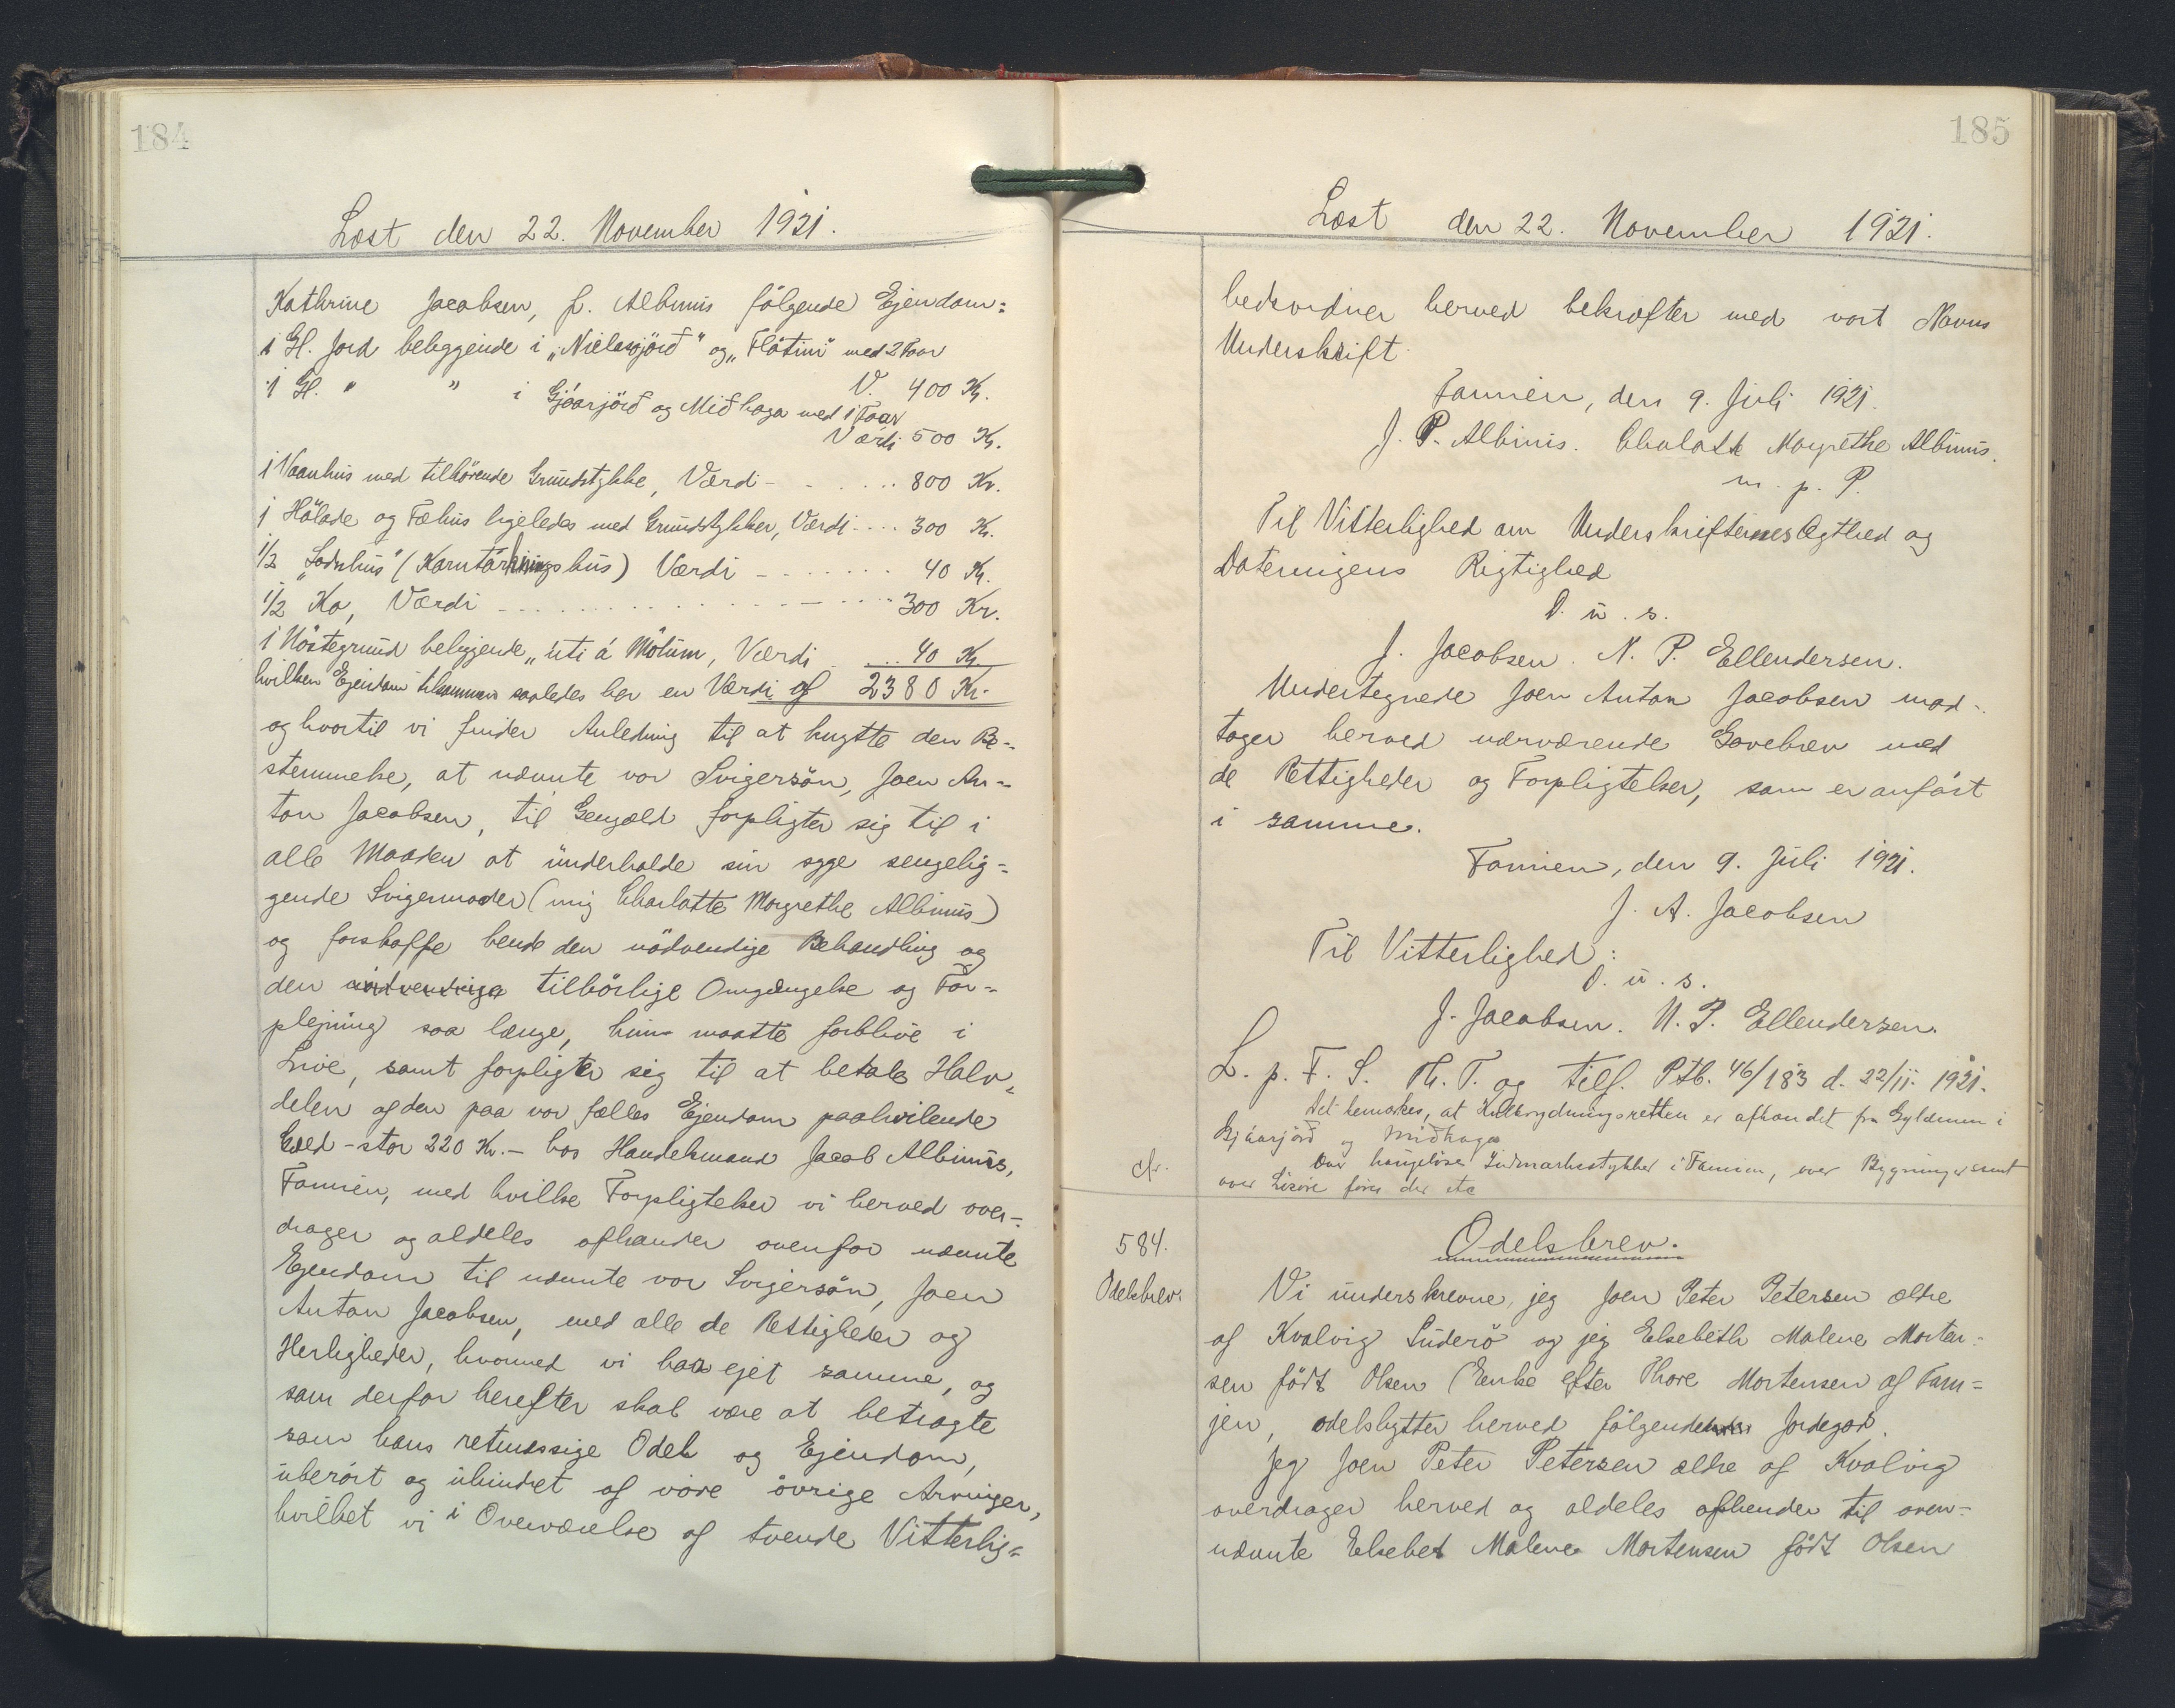 184
Læst den 22. November 1921.
Kathrine Jacobsen, f. Albinus følgende Ejendom:
1 Gl. Jord beliggende i „Nielesgjörð" og „Flötini" med 2 Faar
V. 400 Kr.
1 Gl. " " i Gjóarjörð og Miðhaga med 1 Faar
Værdi 500 Kr.
1 Vaanhus med tilhörende Grundstykke, Værdi - - ... 800 Kr.
1 Hölade og Fæhus ligeledes med Grundstykker, Værdi .... 300 Kr.
1/2 „Sodnhus" (Korntörkningshus) Værdi - - - - - - 40 Kr.
1/2 Ko, Værdi - - - - - - - - - - 300 Kr.
1 Nöstegrund beliggende „úti á Mölum, Værdi ... 40 Kr.
hvilken Ejendom tilsammen saaledes har en Værdi af 2380 Kr.
og hvortil vi finder Anledning til at knytte den Be-
stemmelse, at nævnte vor Svigersön, Joen An-
ton Jacobsen, til Gengæld forpligter sig til i
alle Maader at underholde sin syge sengelig-
gende Svigermoder (mig Charlotte Margrethe Albinus)
og forskaffe hende den nödvendige Behandling og
den nödvendige tilbörlige Omgængelse og For-
plejning saa længe, hun maatte forblive i
Live, samt forpligter sig til at betale Halv-
delen af den paa vor fælles Ejendom paahvilende
Gæld - stor 220 Kr. - hos Handelsmand Jacob Albinus,
Famien, med hvilke Forpligtelser vi herved over-
drager og aldeles afhænder ovenfor nævnte
Ejendom til nævnte vor Svigersön, Joen
Anton Jacobsen, med alle de Rettigheder og
Herligheder, hvormed vi have ejet samme, og
som derfor herefter skal være at betragte
som hans retmæssige Odel og Ejendom,
uberört og uhindret af vore övrige Arvinger,
hvilket vi i Overværelse af tvende Vitterlig-
185
Læst den 22. November 1921.
hedsvidner herved bekræfter med vort Navns
Underskrift.
Famien, den 9. Juli 1921.
J. P. Albinus. Charlotte Margrethe Albinus.
m. p. P.
Til Vitterlighed om Underskrifternes Ægthed og
Dateringens Rigtighed
D. u. s.
J. Jacobsen. N. P. Ellendersen.
Undertegnede Joen Anton Jacobsen mod-
tager herved nærværende Gavebrev med
de Rettigheder og Forpligtelser, som er anfört
i samme.
Famien, den 9. Juli 1921.
J. A. Jacobsen
Til Vitterlighed:
D. u. s.
J. Jacobsen. N. P. Ellendersen.
L. p. F. S. Th. T. og tilf. Ptb. 46/183 d. 22/11. 1921.
Det bemærkes, at Kulbrydningsretten er afhændet fra Gyldenen i
Gjóarjörð og Miðhaga
cfr.
Over haugelöse Indmarksstykker i Famien, over Bygninger samt
over Lösöre föres der etc
584.
Odelsbrev.
Odelsbrev.
Vi underskrevne, jeg Joen Peter Petersen ældre
af Kvalvig Suderö og jeg Elsebeth Malene Morten-
sen födt Olsen (Enke efter Thore Mortensen af Fam-
jen, odelsbytter herved fölgende Jordegod.
Jeg Joen Peter Petersen ældre af Kvalvig
overdrager herved og aldeles afhender til oven-
nævnte Elsebet Malene Mortensen födt Olsen